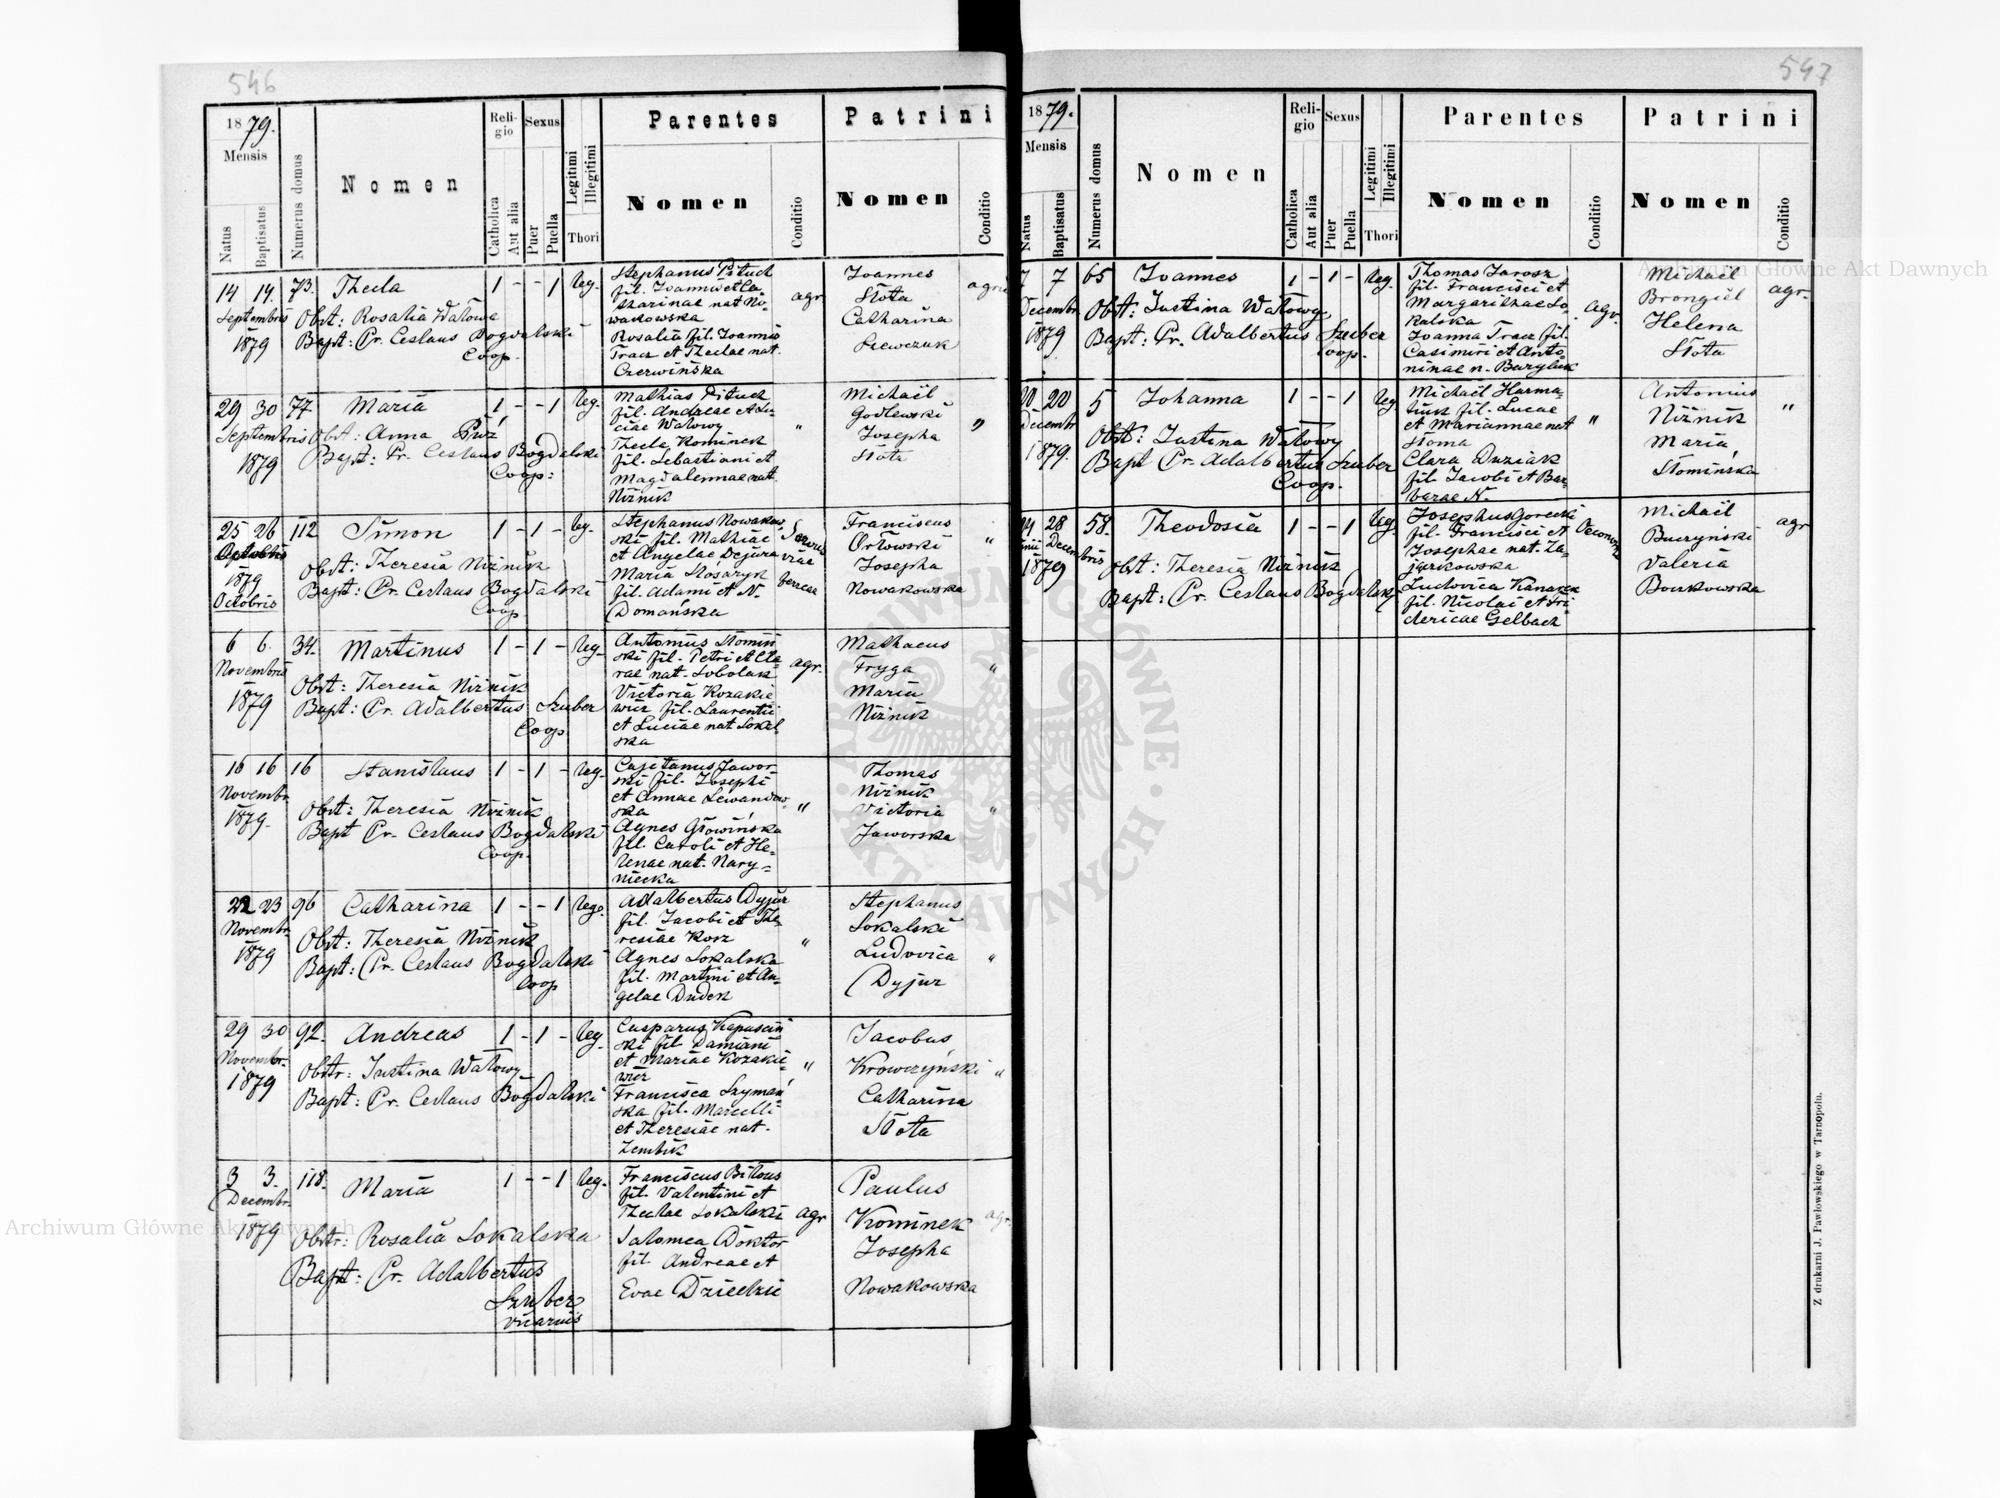 546
1879.
Mensis
Natus
Baptisatus
Numerus domus
Nomen
Religio
Catholica
Aut alia
Sexus
Puer
Puella
Legitimi
Illegitimi
Thori
Parentes
Nomen
Conditio
Patrini
Nomen
Conditio
14 14. 73. Thecla 1 - - 1 leg.
Septembris
1879
Obst: Rosalia Watowa
Bapt: Pr. Ceslaus Bogdalski
Coop.
Stephanus Pituch
fil. Joannis et Ca-
tharinae nat No-
wakowska
Rosalia fil. Joannis
Tracz et Theclae nat.
Czerwińska
agr.
Joannes
Słota
Catharina
Szewczuk
29 30 77 Maria 1 - - 1 leg.
Septembris
1879
Obst: Anna
Bapt: Pr. Ceslaus Bogdalski
Coop:
Mathias Pituch
fil. Andreae et Lu-
ciae Watowy
Thecla Kominek
fil. Sebastiani et
Magdalennae nat.
Niżnik
"
Michaël
Godlewski
Josepha
Słota
"
25 26 112 Simon 1 - 1 - leg.
1879
Octobris
Obst: Theresia Niżnik
Bapt: Pr. Ceslaus Bogdalski
Coop
Stephanus Nowakow-
ski fil. Mathiae
et Angelae Dejura
Maria Slósaryk
fil. Adami et N.
Domańska
viae
ferreae
Franciscus
Orłowski
Josepha
Nowakowska
"
6 6. 34. Martinus 1 - 1 - leg.
Novembris
1879
Obst: Theresia Niżnik
Bapt: Pr. Adalbertus Szuber
Coop.
Antonius Słomin
ski fil. Petri et Cla-
rae nat. Sobolak
Victoria Kozakie
wicz fil. Laurentii
et Luciae nat Sokal
ska
agr.
Mathaeus
Fryga
Maria
Niżnik
"
16 16 16 Stanislaus 1 - 1 - leg.
Novembr.
1879.
Obst: Theresia Niżnik
Bapt Pr. Ceslaus Bogdalski
Coop.
Cajetanus Jawor-
ski fil. Josephi
et Annae Lewandow-
ska
Agnes Głowińska
fil. Caroli et He-
lenae nat. Nary-
niecka
"
Thomas
Niżnik
Victoria
Jaworska
"
22 23 96 Catharina 1 - - 1 leg.
Novembr.
1879
Obst: Theresia Niżnik
Bapt: Pr. Ceslaus Bogdalski
Coop
Adalbertus Dyjur
fil. Jacobi et The-
resiae Korz
Agnes Sokalska
fil. Martini et An-
gelae Dudek
"
Stephanus
Sokalski
Ludovica
Dyjur
"
29 30 92. Andreas 1 - 1 - leg.
Novembr.
1879
Obstr: Justina Watowy
Bapt: Pr. Ceslaus Bogdalski
Casparus Kapuscin
ski fil Damiani
et Mariae Kozakie-
wicz
Francisca Szymań-
ska fil. Marcelli
et Theresiae nat.
Zembik
"
Jacobus
Krowczyński
Catharina
Słota
"
3 3. 118. Maria 1 - - 1 leg.
Decembr.
1879
Obstr: Rosalia Sokalska
Bapt: Pr. Adalbertus
Szuber
vicarius
Franciscus Bitous
fil. Valentini et
Theclae Sokalski
Salomea Doktor
fil. Andreae et
Evae Dziedzic
agr
Paulus
Kominek
Josepha
Nowakowska
agr.
547
1879.
Mensis
Natus
Baptisatus
Numerus domus
Nomen
Religio
Catholica
Aut alia
Sexus
Puer
Puella
Legitimi
Illegitimi
Thori
Parentes
Nomen
Conditio
Patrini
Nomen
Conditio
7 7 65 Joannes 1 - 1 - leg.
Decembr
1879
Obst: Justina Watowy
Bapt: Pr. Adalbertus Szuber
Coop.
Thomas Jarosz
fil. Francisci et
Margarithae So-
kalska
Joanna Tracz fil.
Casimiri et Anto-
ninae n. Buryluk
agr.
Michaël
Brongiel
Helena
Słota
agr.
20 20 5 Johanna 1 - - 1 leg
Decembr
1879.
Obst: Justina Watowy
Bapt Pr. Adalbertus Szuber
Coop.
Michaël Harma-
tiuk fil. Lucae
et Mariannae nat
Słoma
Clara Duziak
fil. Jacobi et Bar-
barae N.
"
Antonius
Niżnik
Maria
Słomińska
"
28 58. Theodosia 1 - - 1 leg.
Decem
bris
1879
Obst: Theresia Niżnik
Bapt: Pr. Ceslaus Bogdalski
Josephus Gorecki
fil. Francisci et
Josephae nat. Za-
jarkowska
Ludovica Kanarek
fil. Nicolai et Fri
dericae Gelbach
Oeconom
Michaël
Buczyński
Valeria
Bourkowska
agr
Z drukarni J. Pawłowskiego w Tarnopolu.
Archiwum Główne Akt Dawnych
Archiwum Główne Akt Dawnych
ARCHIWUM GŁÓWNE AKT DAWNYCH